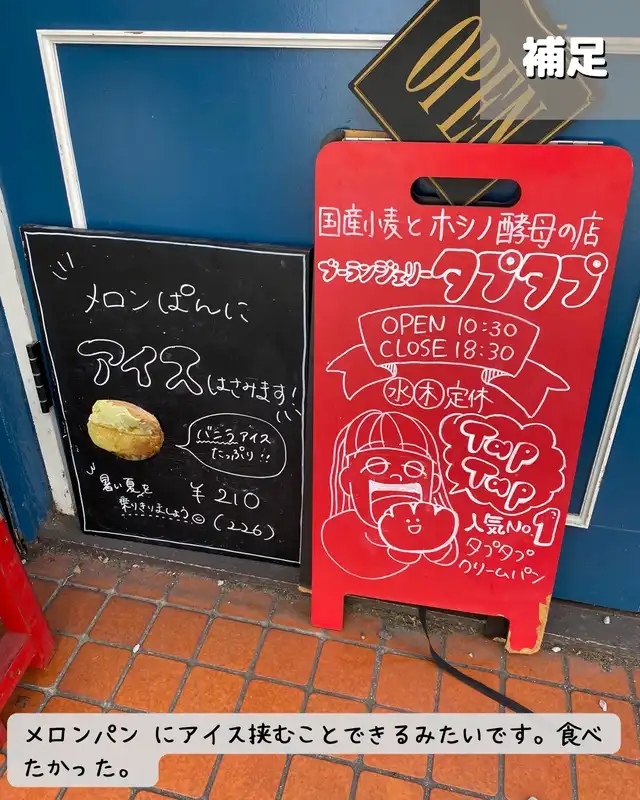 補足
OPEN
国産小麦とホシノ酵母の店
ブーランジェリータプタプ
OPEN 10:30
CLOSE 18:30
水木定休
Tap
Tap
人気No1
タプタプ
クリームパン
メロンぱんに
アイスはさみます!
バニラアイス
たっぷり!!
暑い夏を
乗りきりましょう
¥210
(226)
メロンパン にアイス挟むことできるみたいです。食べ
たかった。